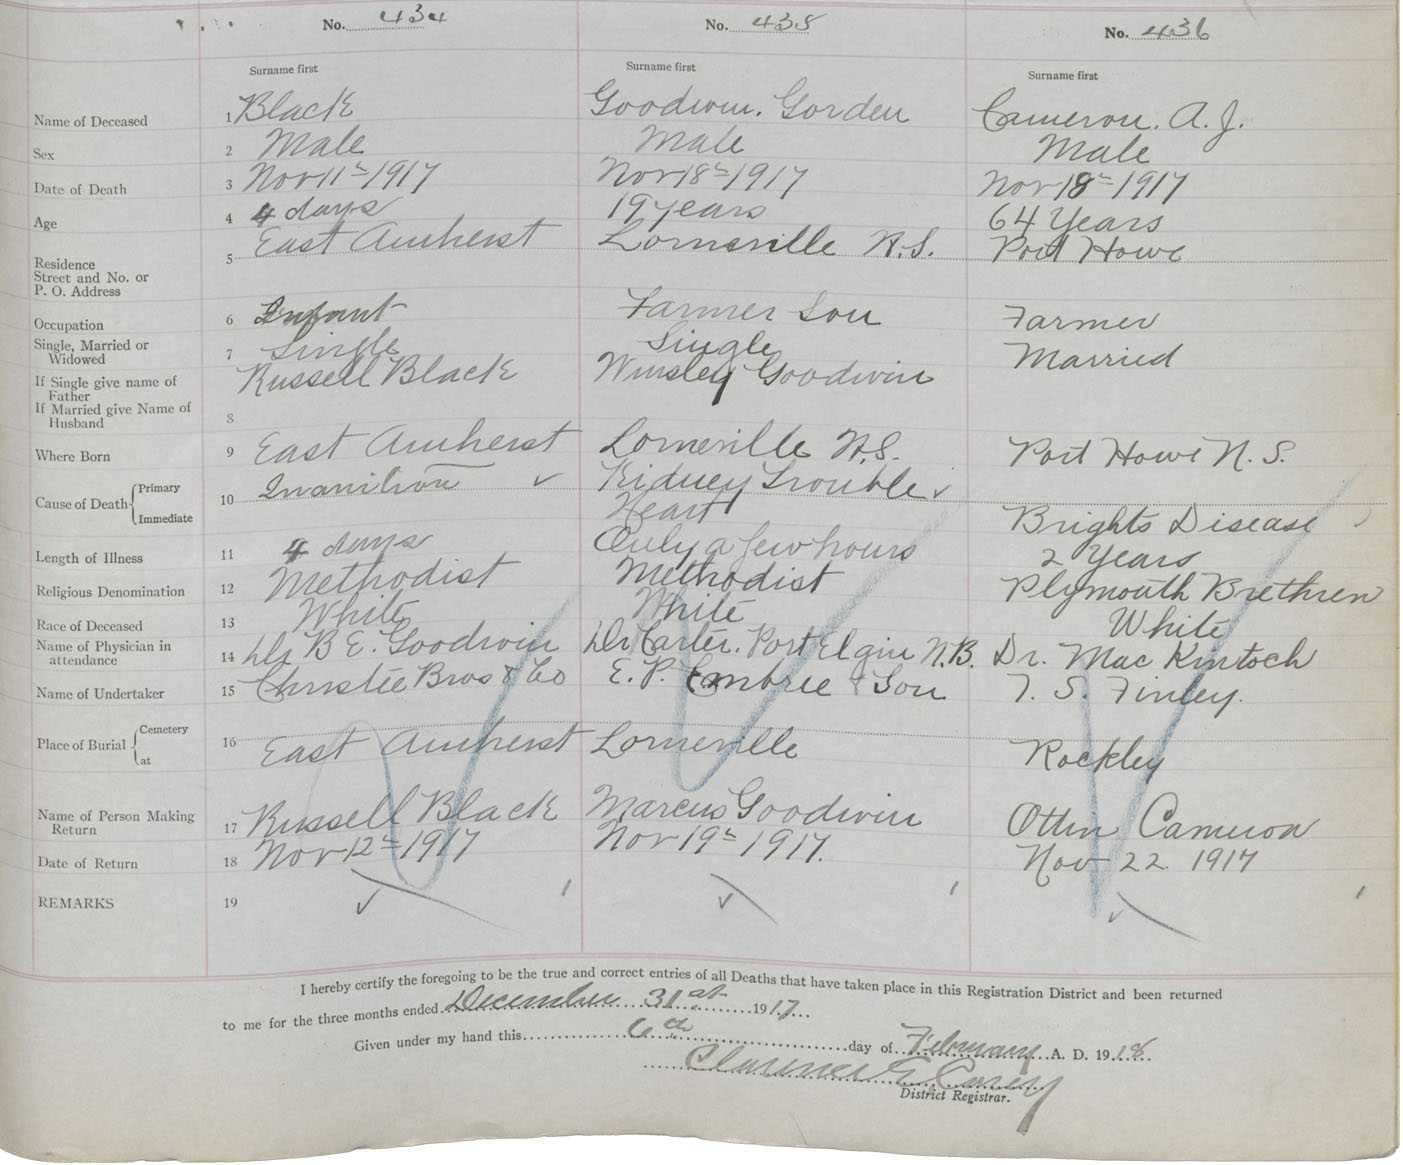 No. 434 No. 435 No. 436
Surname first Surname first Surname first
Name of Deceased 1 Black Goodwin. Gorden Cameron. A. J.
Sex 2 Male Male Male
Date of Death 3 Nov 11th 1917 Nov 18th 1917 Nov 18th 1917
Age 4 4 days 19 years 64 Years
Residence Street and No. or P. O. Address 5 East Amherst Lorneville N.S. Port Howe
Occupation 6 Infant Farmer Son Farmer
Single, Married or Widowed 7 Single Single Married
If Single give name of Father Russell Black Goodwin
If Married give Name of Husband 8
Where Born 9 East Amherst Lorneville N.S. Port Howe N. S.
Cause of Death Primary 10 Inanition Kidney Trouble
Immediate Heart Brights Disease
Length of Illness 11 4 days Only a few hours 2 Years
Religious Denomination 12 Methodist Methodist Plymouth Brethren
Race of Deceased 13 White White White
Name of Physician in attendance 14 Dr B E. Goodwin Dr Carter. Port Elgin N.B. Dr. Mac Kintoch
Name of Undertaker 15 Christie Bros & Co E. P. Embree & Son T. S. Finley.
Place of Burial Cemetery at 16 East Amherst Lorneville Rockley
Name of Person Making Return 17 Russell Black Marcus Goodwin Cameron
Date of Return 18 Nov 12th 1917 Nov 19th 1917. Nov 22 1917
REMARKS 19
I hereby certify the foregoing to be the true and correct entries of all Deaths that have taken place in this Registration District and been returned
to me for the three months ended December 31st 1917
Given under my hand this 6th day of February A. D. 1918
Clarence E Casey
District Registrar.